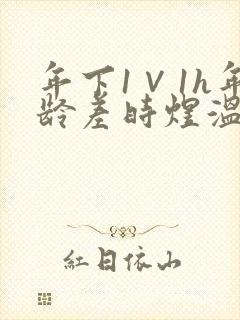 年下1V1h年
龄差时煜温
紅日依山